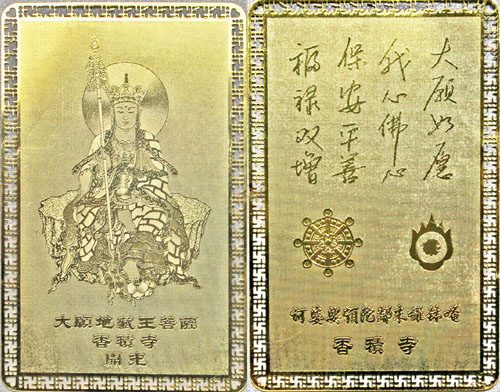 大願地藏王菩薩
香積寺
開光
大願如愿
我心佛心
保安平善
福禄双增
唵鉢羅末鄰陀娑婆訶
香積寺